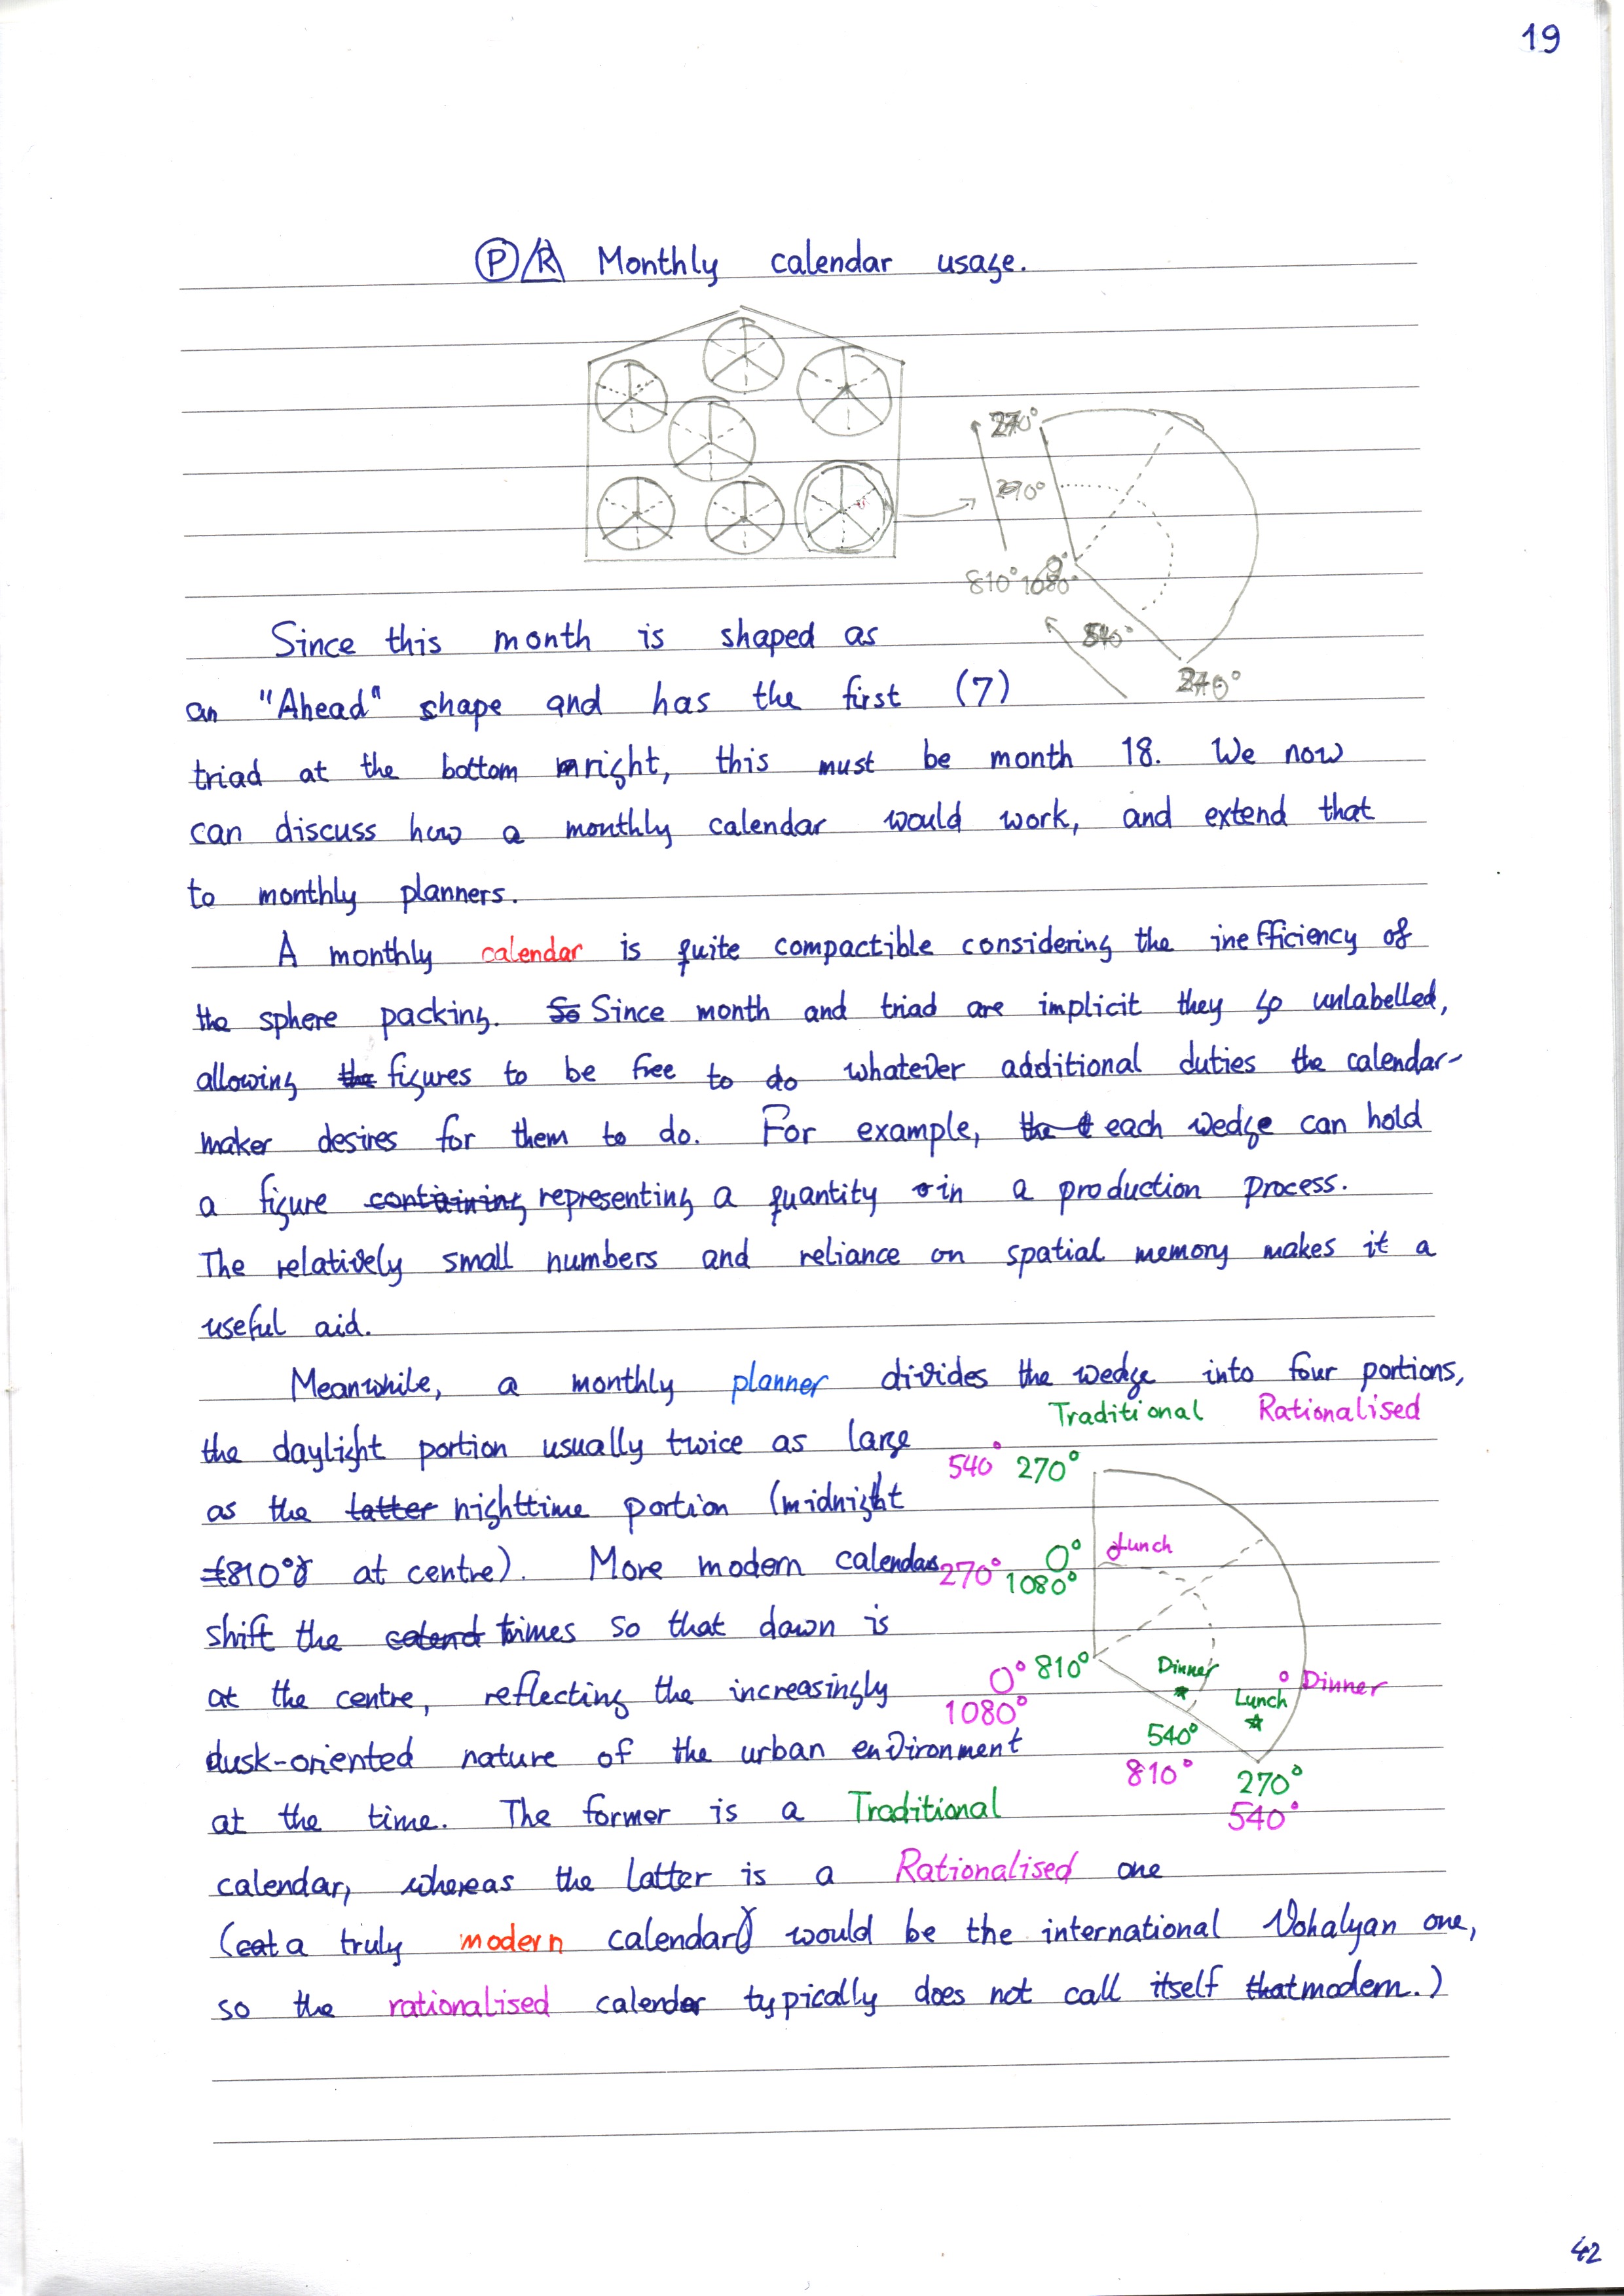 19
P R Monthly calendar usage.
270°
270°
0°
810° 1080°
540°
270°
Since this month is shaped as
an "Ahead" shape and has the first (7)
triad at the bottom right, this must be month 18. We now
can discuss how a monthly calendar would work, and extend that
to monthly planners.
A monthly calendar is quite compactible considering the inefficiency of
the sphere packing. So Since month and triad are implicit they go unlabelled,
allowing the figures to be free to do whatever additional duties the calendar-
maker desires for them to do. For example, the t each wedge can hold
a figure containing representing a quantity in a production process.
The relatively small numbers and reliance on spatial memory makes it a
useful aid.
Meanwhile, a monthly planner divides the wedge into four portions,
Traditional Rationalised
the daylight portion usually twice as large
540° 270°
as the latter nighttime portion (midnight
810° at centre). More modern calendars
270° 0° 1080° Lunch
shift the calend times so that dawn is
at the centre, reflecting the increasingly
0° 1080° 810° Dinner Lunch Dinner
dusk-oriented nature of the urban environment
540° 810° 270° 540°
at the time. The former is a Traditional
calendar, whereas the latter is a Rationalised one
(cat a truly modern calendar would be the international Vohalyan one,
so the rationalised calender typically does not call itself that modern.)
42